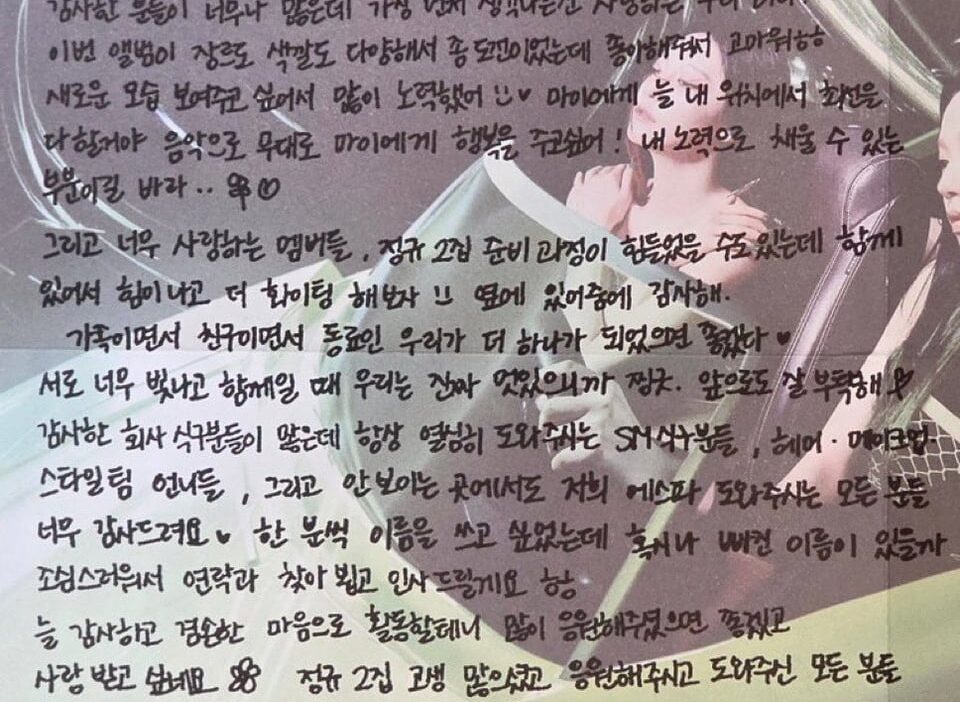 감사한 분들이 너무나 많은데 가장 먼저 생각나는건 사랑하는 우리 마이!
이번 앨범이 장르도 색깔도 다양해서 좀 도전이었는데 좋아해줘서 고마워ㅎㅎ
새로운 모습 보여주고 싶어서 많이 노력했어 ♥ 마이에게 늘 내 위치에서 최선을
다할거야 음악으로 무대로 마이에게 행복을 주고싶어! 내 노력으로 채울 수 있는
부분이길 바라..
그리고 너무 사랑하는 멤버들, 정규 2집 준비 과정이 힘들었을 수도 있는데 함께
있어서 힘이나고 더 화이팅 해보자 옆에 있어줌에 감사해.
가족이면서 친구이면서 동료인 우리가 더 하나가 되었으면 좋겠다 ♥
서로 너무 빛나고 함께일 때 우리는 진짜 멋있으니까 찡긋. 앞으로도 잘 부탁해
감사한 회사 식구분들이 많은데 항상 열심히 도와주시는 SM식구분들, 헤어·메이크업
스타일팀 언니들, 그리고 안보이는 곳에서도 저희 에스파 도와주시는 모든 분들
너무 감사드려요 ♥ 한 분씩 이름을 쓰고 싶었는데 혹시나 빠진 이름이 있을까
조심스러워서 연락과 찾아 뵙고 인사드릴게요 항상
늘 감사하고 겸손한 마음으로 활동할테니 많이 응원해주셨으면 좋겠고
사랑 받고 싶네요 정규 2집 고생 많으셨고 응원해주시고 도와주신 모든 분들